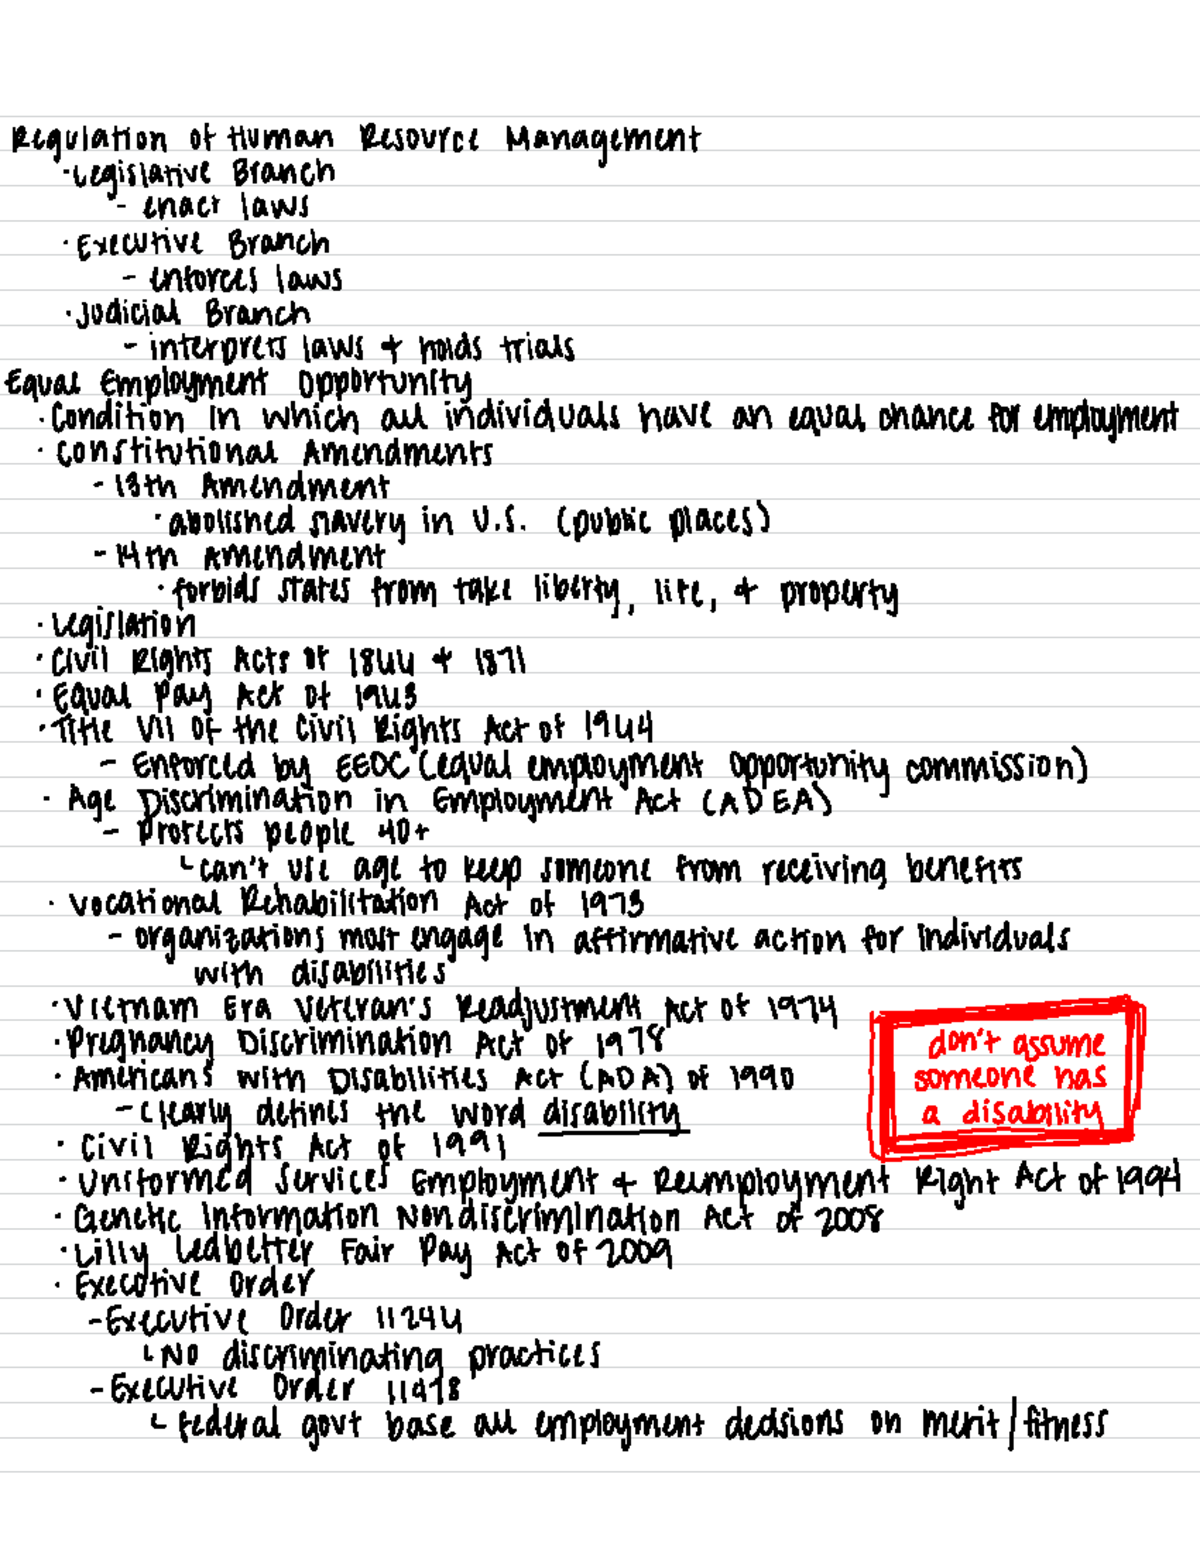 Regulation of Human Resource Management
· Legislative Branch
- enact laws
· Executive Branch
- enforces laws
· Judicial Branch
- interprets laws + holds trials
Equal Employment Opportunity
· Condition in which all individuals have an equal chance for employment
· Constitutional Amendments
- 13th Amendment
· abolished slavery in U.S. (public places)
- 14th Amendment
· forbids states from take liberty, life, + property
· Legislation
· Civil Rights Acts of 1866 + 1871
· Equal Pay Act of 1963
· Title VII of the Civil Rights Act of 1964
- Enforced by EEOC (equal employment opportunity commission)
· Age Discrimination in Employment Act (ADEA)
- Protects people 40+
└ can't use age to keep someone from receiving benefits
· Vocational Rehabilitation Act of 1973
- organizations most engage in affirmative action for individuals
with disabilities
· Vietnam Era Veteran's Readjustment Act of 1974
· Pregnancy Discrimination Act of 1978
· Americans with Disabilities Act (ADA) of 1990
- clearly defines the word disability
don't assume
someone has
a disability
· Civil Rights Act of 1991
· Uniformed Services Employment + Reemployment Right Act of 1994
· Genetic Information Nondiscrimination Act of 2008
· Lilly Ledbetter Fair Pay Act of 2009
· Executive Order
- Executive Order 11246
└ No discriminating practices
- Executive Order 11478
└ Federal govt base all employment decisions on merit/fitness